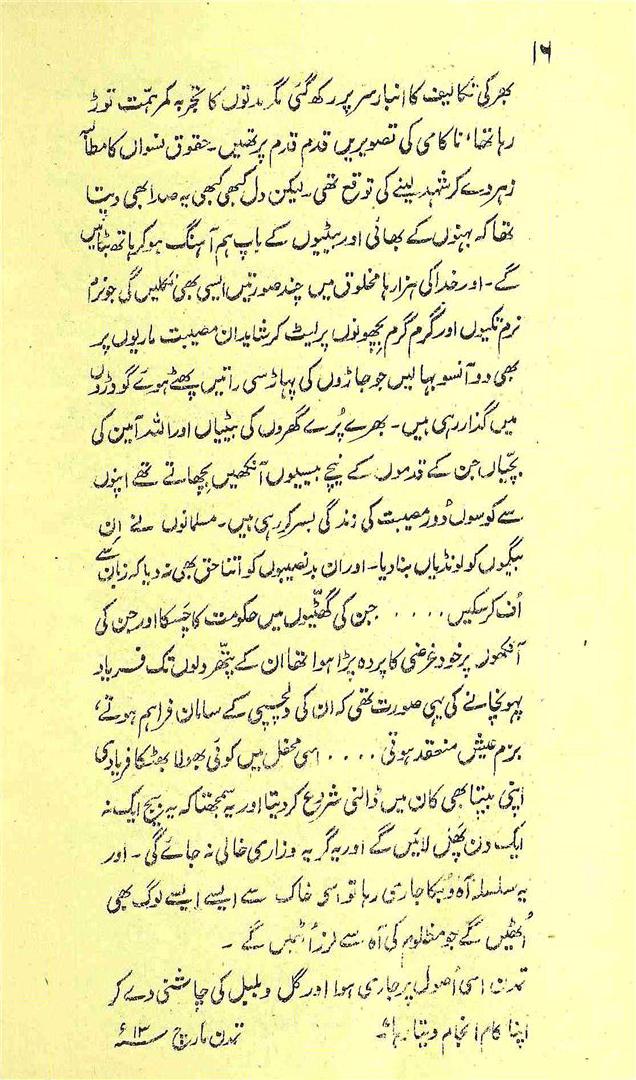 ۱۶
بھر کی تکالیف کا انبار سر پر رکھ گئی مگر مدتوں کا تجربہ کمر ہمّت توڑ
رہا تھا، ناکامی کی تصویریں قدم قدم پر تھیں۔ حقوق نسواں کا مطالبہ
زہر دے کر شہد لینے کی توقع تھی۔ لیکن دل کبھی کبھی یہ صدا بھی دیتا
تھا کہ بہنوں کے بھائی اور بیٹیوں کے باپ ہم آہنگ ہو کر ہاتھ بٹائیں
گے۔ اور خدا کی ہزارہا مخلوق میں چند صورتیں ایسی بھی نکلیں گی جو نرم
نرم تکیوں اور گرم گرم بچھونوں پر لیٹ کر شاید ان مصیبت ماریوں پر
بھی دو آنسو بہا لیں جو جاڑوں کی پہاڑ سی راتیں پھٹے ہوئے گودڑوں
میں گذار رہی ہیں۔ بھرے پُرے گھروں کی بیٹیاں اور اللہ آمین کی
بچیاں جن کے قدموں کے نیچے بیسیوں آنکھیں بچھاتے تھے اپنوں
سے کوسوں دُور مصیبت کی زندگی بسر کر رہی ہیں۔ مسلمانوں نے ان
بیگموں کو لونڈیاں بنا دیا۔ اور ان بدنصیبوں کو اتنا حق بھی نہ دیا کہ زبان سے
اُف کر سکیں .... جن کی گھٹیوں میں حکومت کا چسکا اور جن کی
آنکھوں پر خود غرضی کا پردہ پڑا ہوا تھا ان کے پتھّر دلوں تک فریاد
پہونچانے کی یہی صورت تھی کہ ان کی دلچسپی کے سامان فراہم ہوتے،
بزم عیش منعقد ہوتی .... اسی محفل میں کوئی بھولا بھٹکا فریادی
اپنی بپتا بھی کان میں ڈالنی شروع کر دیتا اور یہ سمجھتا کہ یہ بیج ایک نہ
ایک دن پھل لائیں گے اور یہ گریہ وزاری خالی نہ جائے گی۔ اور
یہ سلسلہ آہ و بُکا جاری رہا تو اسی خاک سے ایسے ایسے لوگ بھی
اُٹھیں گے جو مظلوم کی آہ سے لرز اُٹھیں گے۔
تمدن اسی اُصول پر جاری ہوا اور گل و بلبل کی چاشنی دے کر
اپنا کام انجام دیتا رہا۔ تمدن مارچ سنہ ۱۳ء